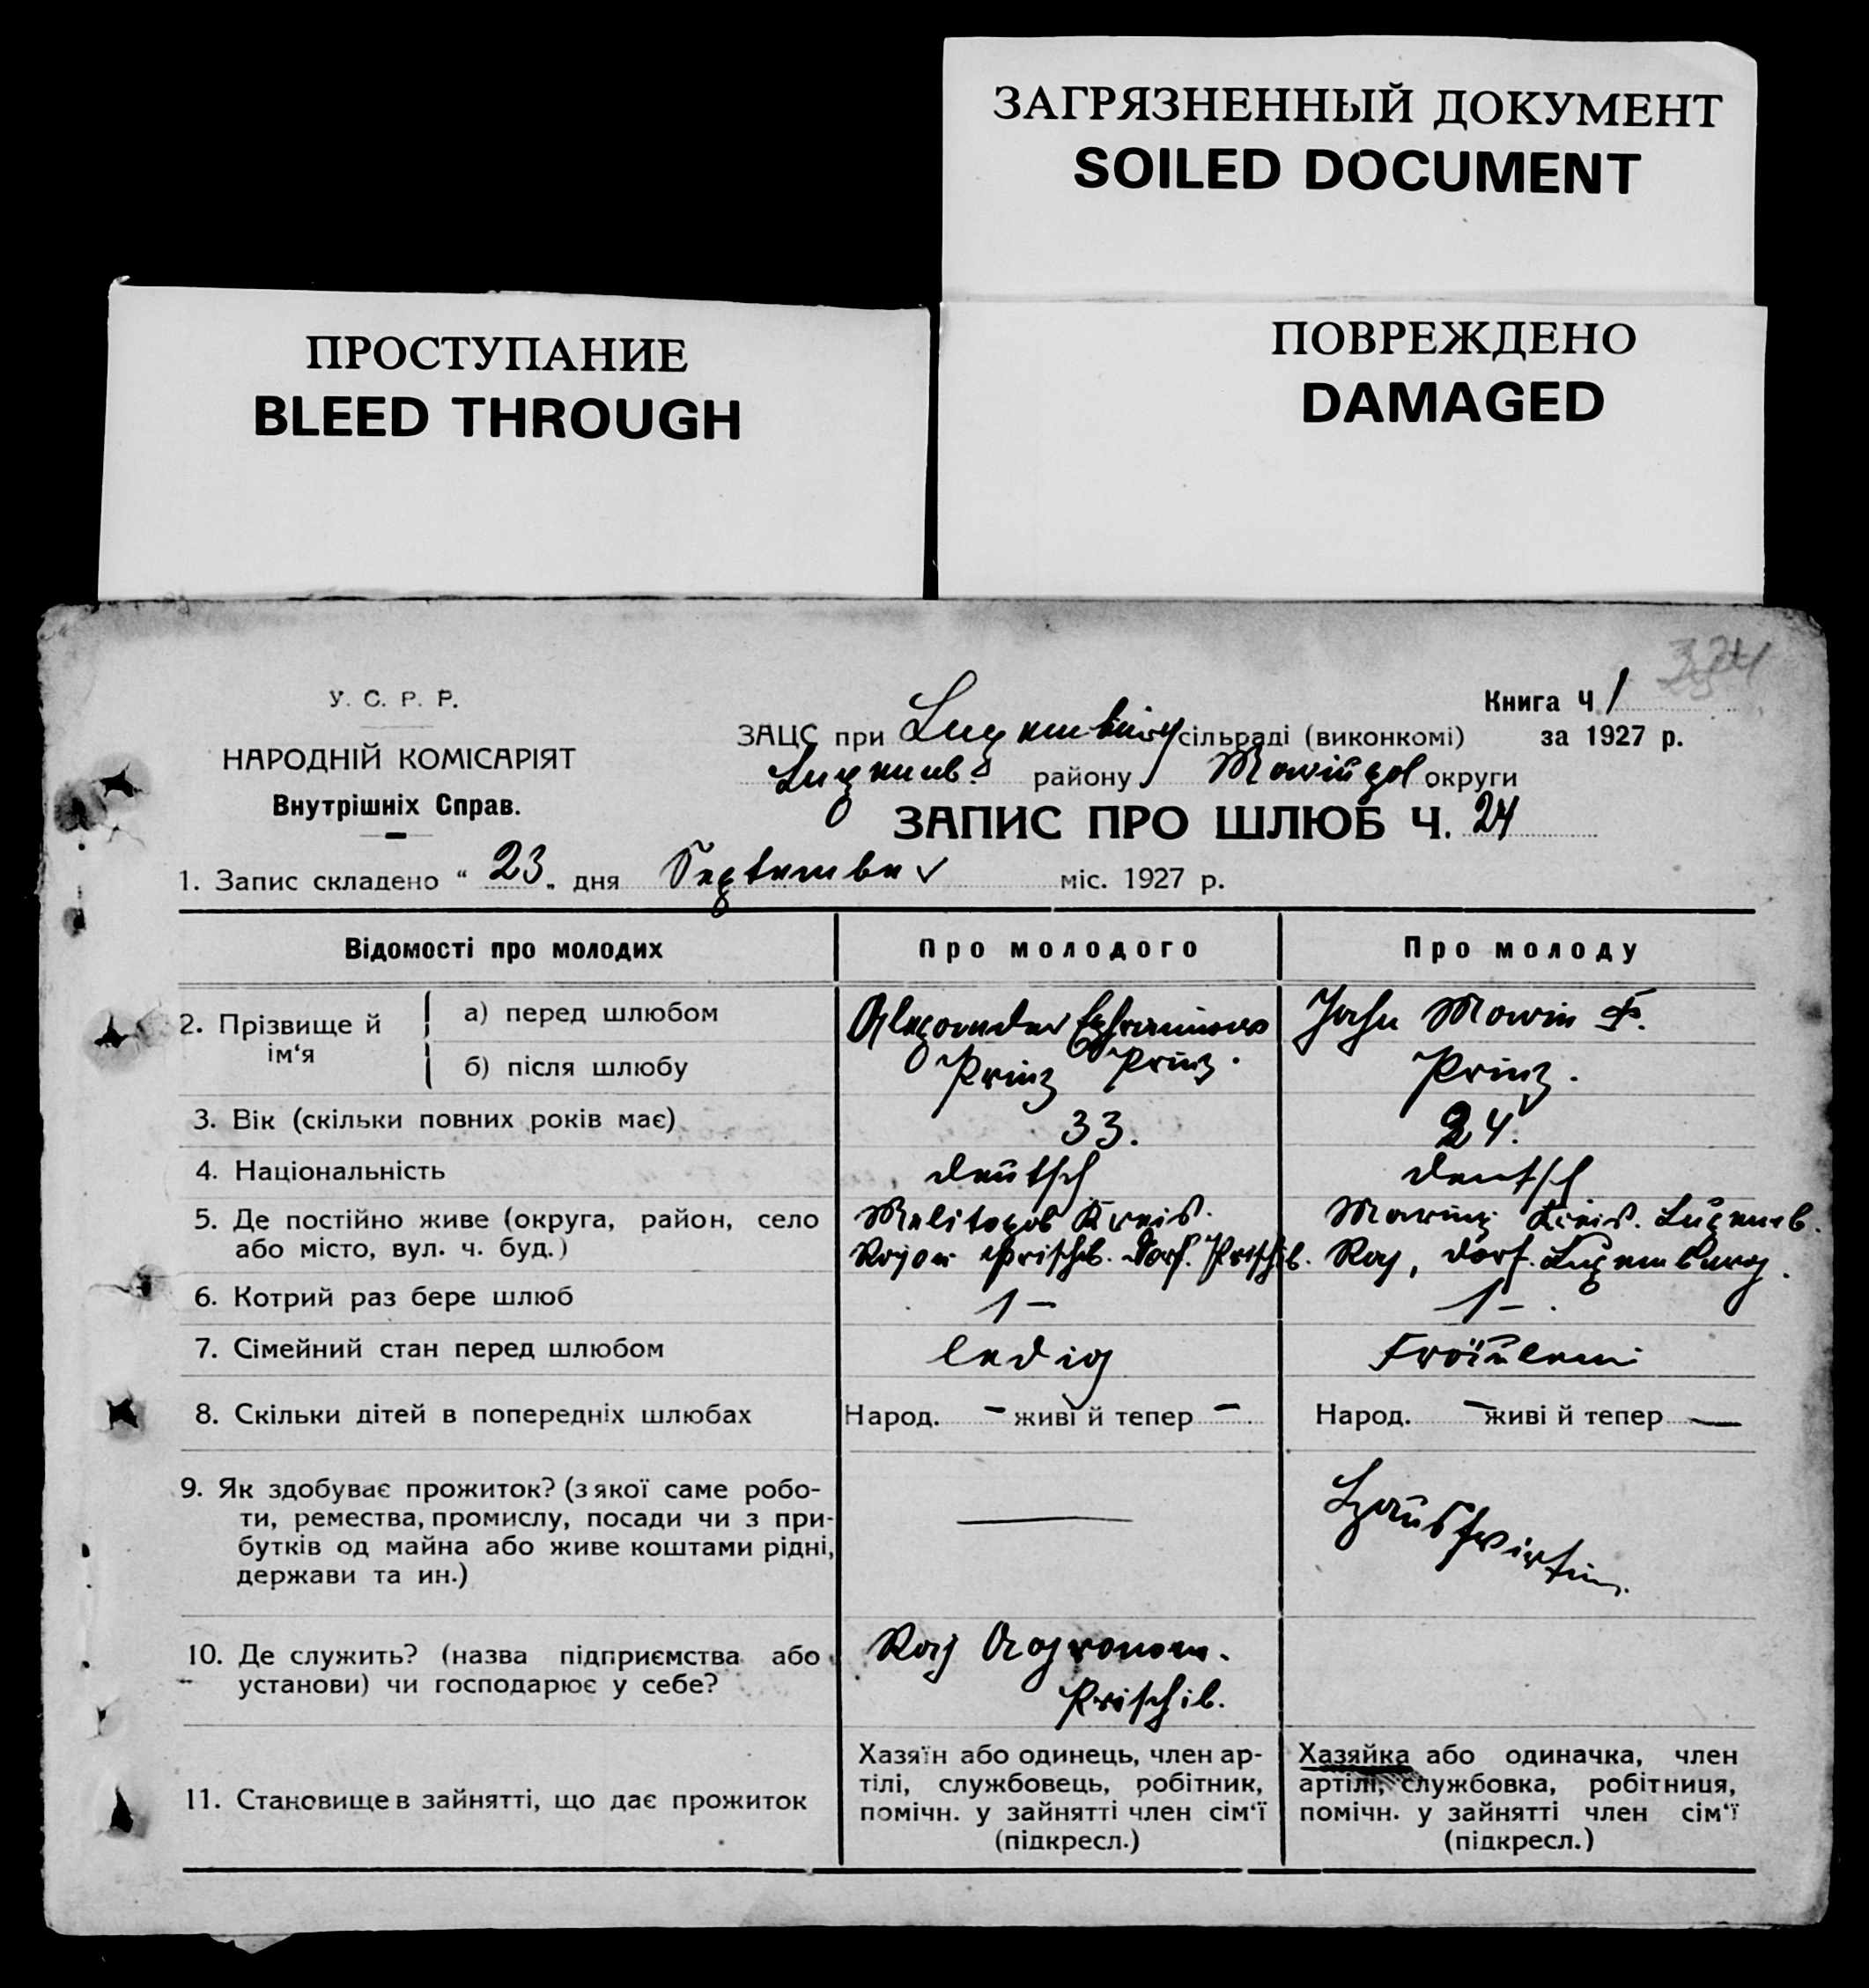 ЗАГРЯЗНЕННЫЙ ДОКУМЕНТ
SOILED DOCUMENT
ПРОСТУПАНИЕ
BLEED THROUGH
ПОВРЕЖДЕНО
DAMAGED
У. С. Р. Р.
НАРОДНІЙ КОМІСАРІЯТ
Внутрішніх Справ.
Книга Ч 1
ЗАЦС при Luxemburg сільраді (виконкомі) за 1927 р.
Luxemb. району Mariupol округи
ЗАПИС ПРО ШЛЮБ Ч. 24
1. Запис складено “ 23 „ дня September міс. 1927 р.
Відомості про молодих Про молодого Про молоду
2. Прізвище й ім‘я
а) перед шлюбом Alexander Prinz. Jahn Maria F.
б) після шлюбу Prinz Prinz.
3. Вік (скільки повних років має) 33. 24.
4. Національність deutsch deutsch
5. Де постійно живе (округа, район, село Melitopol Kreis. Mariup. Kreis. Luxemb.
або місто, вул. ч. буд.) Rajon Prischib. Dorf. Prischib. Raj, Dorf. Luxemburg.
6. Котрий раз бере шлюб 1 – 1 – .
7. Сімейний стан перед шлюбом ledig Fräulein
8. Скільки дітей в попередніх шлюбах Народ. – живі й тепер – Народ. – живі й тепер —
9. Як здобуває прожиток? (з якої саме робо-
ти, ремества, промислу, посади чи з при-
бутків од майна або живе коштами рідні,
держави та ин.) — Hauswirtin.
10. Де служить? (назва підприємства або Raj Agronom.
установи) чи господарює у себе? Prischib.
11. Становище в зайнятті, що дає прожиток
Хазяїн або одинець, член ар-
тілі, службовець, робітник,
помічн. у зайнятті член сім‘ї
(підкресл.)
Хазяйка або одиначка, член
артілі, службовка, робітниця,
помічн. у зайнятті член сім‘ї
(підкресл.)